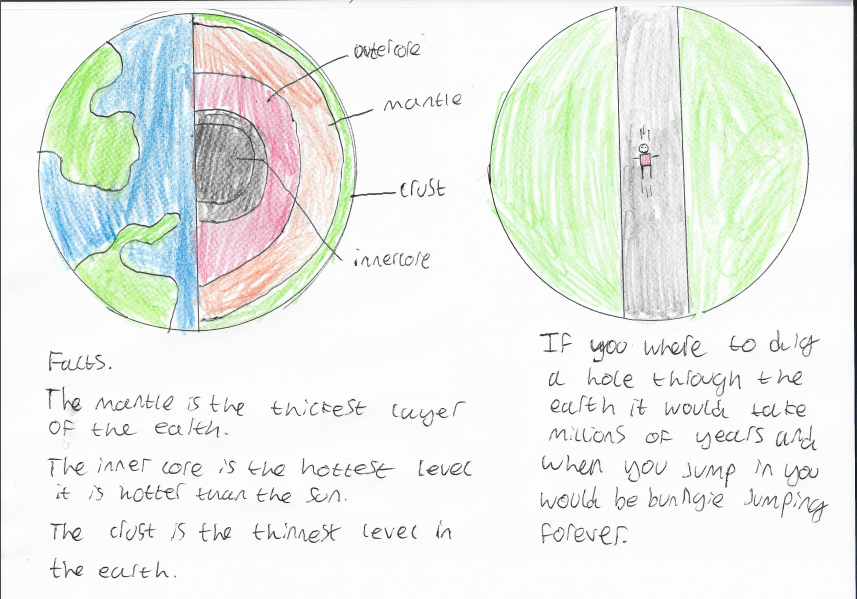 outercore
mantle
crust
innercore
Facts.
The mantle is the thickest layer
of the earth.
The inner core is the hottest level
it is hotter than the sun.
The crust is the thinnest level in
the earth.
If you where to dig
a hole through the
earth it would take
millions of years and
when you jump in you
would be bungie jumping
forever.